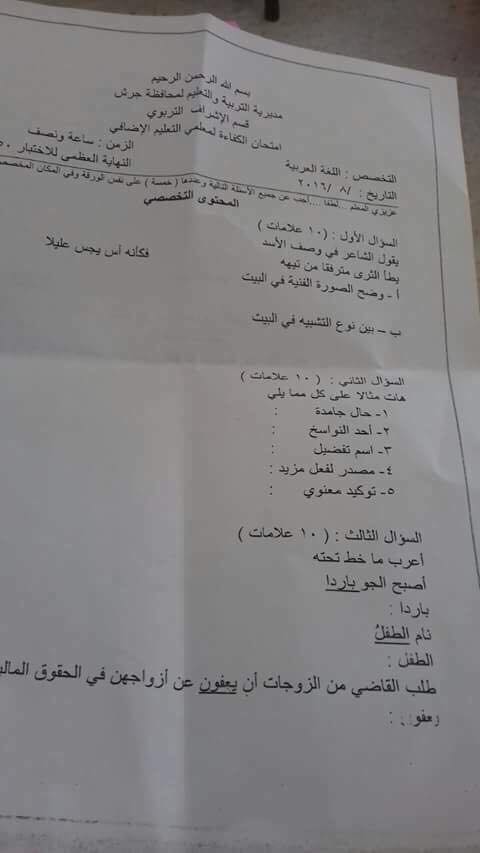 بسم الله الرحمن الرحيم
مديرية التربية والتعليم لمحافظة جرش
قسم الإشراف التربوي
امتحان الكفاءة لمعلمي التعليم الإضافي
التخصص : اللغة العربية
الزمن : ساعة ونصف
التاريخ : / ٨/ ٢٠١٦
النهاية العظمى للاختبار
عزيزي المعلم ..لطفا ....أجب عن جميع الأسئلة التالية وعددها ( خمسة ) على نفس الورقة وفي المكان
المحتوى التخصصي
السؤال الأول : (١٠ علامات )
يقول الشاعر في وصف الأسد
يطأ الثرى مترفقا من تيهه فكأنه آس يجس عليلا
أ - وضح الصورة الفنية في البيت
ب – بين نوع التشبيه في البيت
السؤال الثاني : ( ١٠ علامات )
هات مثالا على كل مما يلي
١- حال جامدة :
٢- أحد النواسخ :
٣- اسم تفضيل :
٤- مصدر لفعل مزيد :
٥- توكيد معنوي :
السؤال الثالث : ( ١٠ علامات )
أعرب ما خط تحته
أصبح الجو باردا
باردا :
نام الطفلُ
الطفل :
طلب القاضي من الزوجات أن يعفون عن أزواجهن في الحقوق
يعفون :